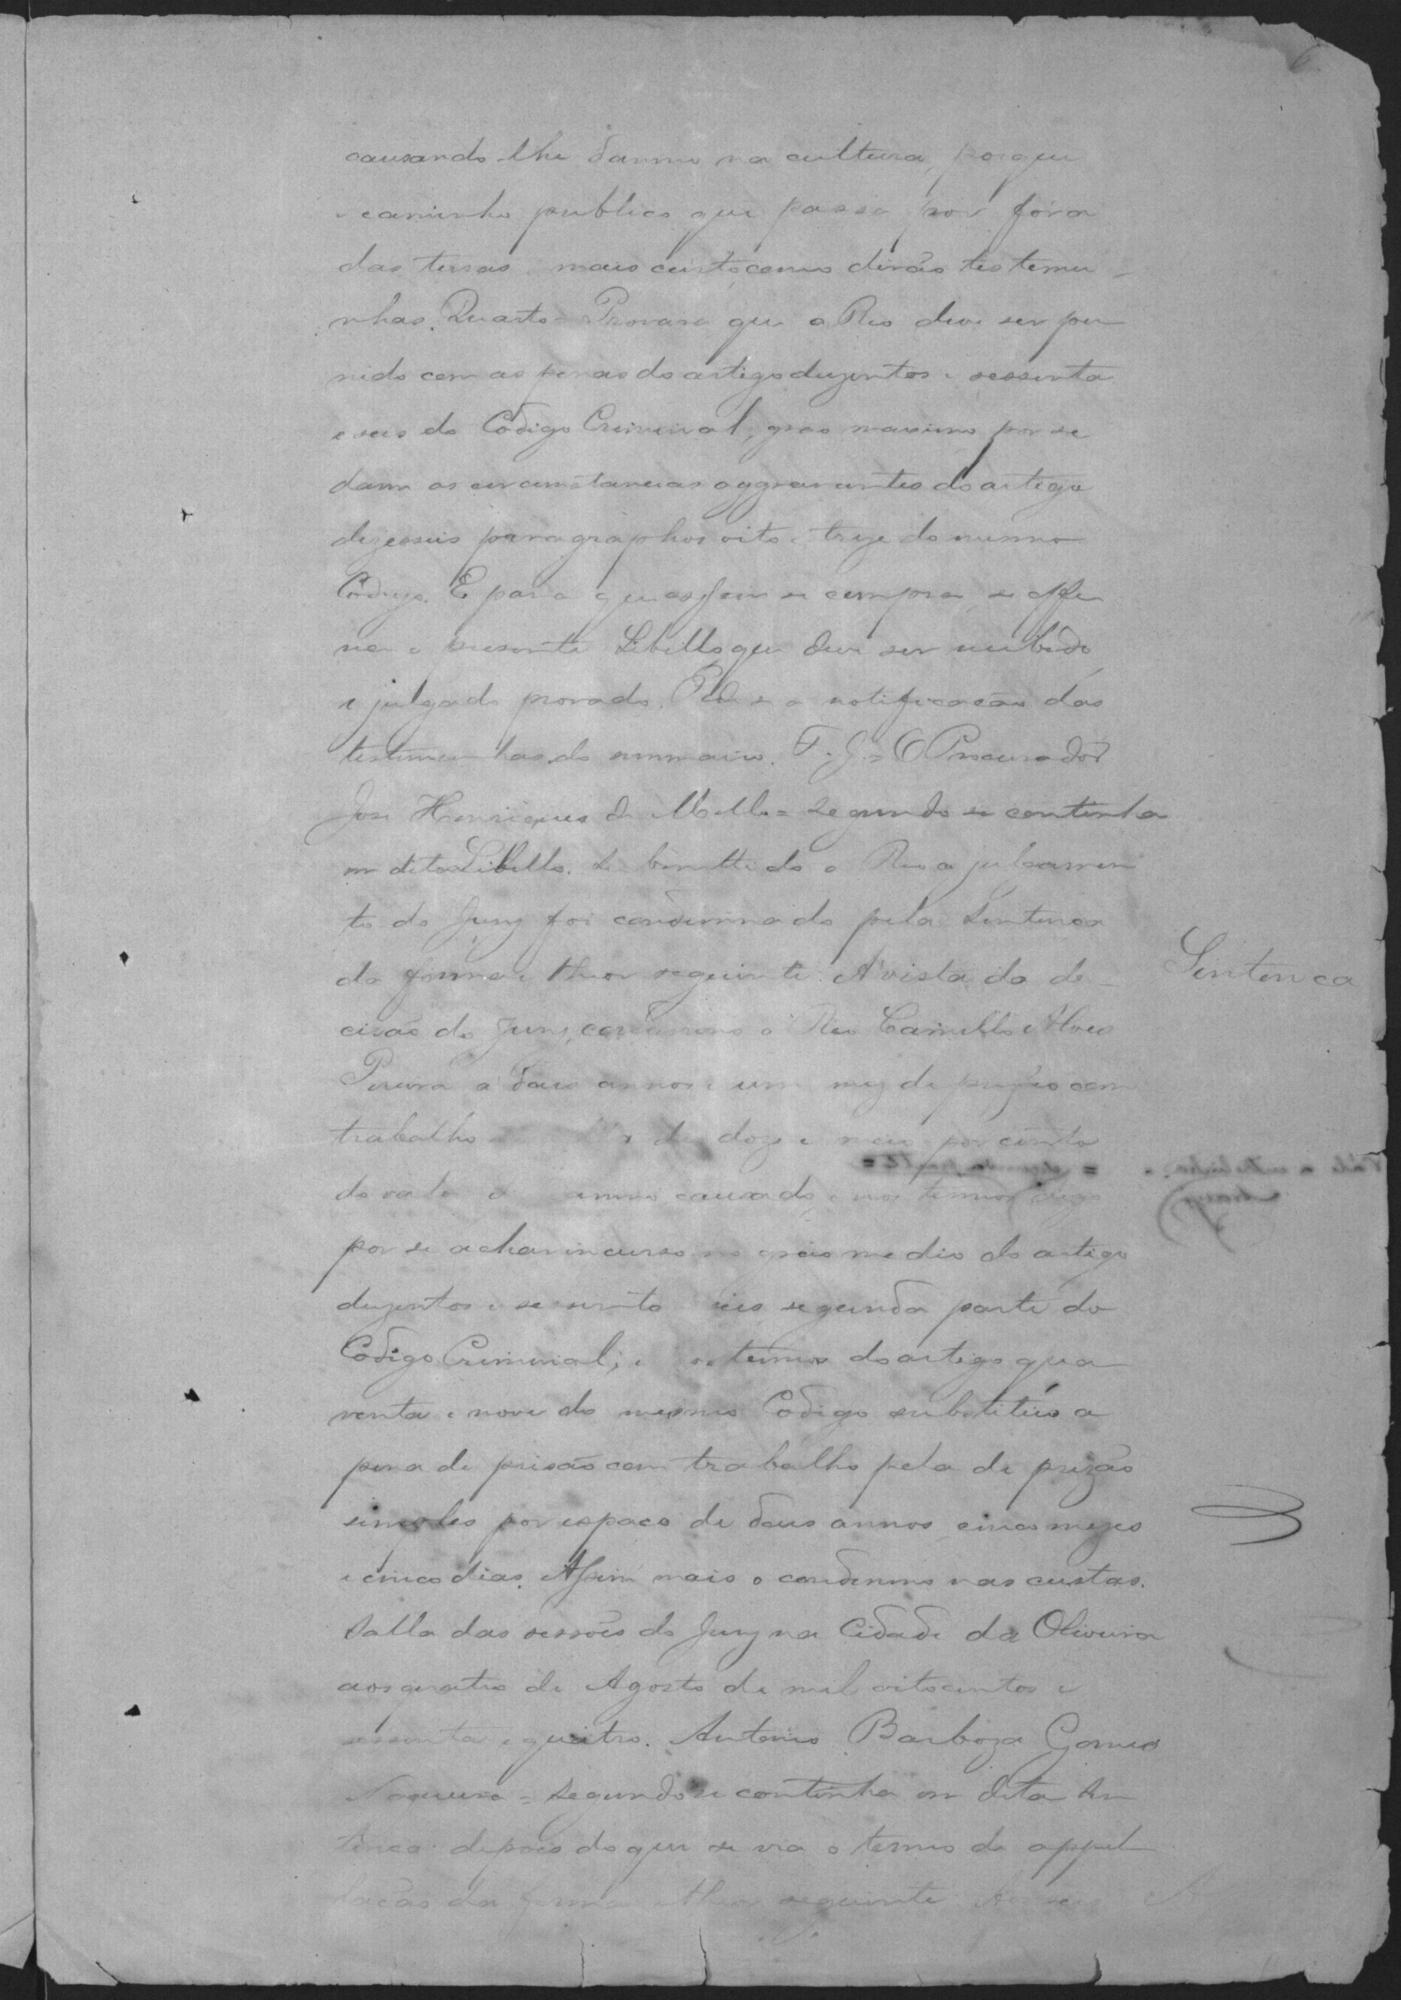 causando-lhe damno na cultura, porque
o caminho publico que passa por fóra
das terras, mais curto, como dirão testemu-
nhas. Quarto = Provará que o Reo deve ser pu
nido com as penas do artigo duzentos e sessenta
e seis do Codigo Criminal, gráo maximo por se
darem as circunstancias aggravantes do artigo
dezesseis paragraphos oito e treze do mesmo
Codigo. E para que assim se cumpra se offe
rece o presente Libello que deve ser recibido
e julgado provado. Pede se a notificação das
testemunhas do summario. F. J. = O Procurador
Jose Henriques de Mello = Segundo se continha
em dito Libello. Submettido o Reo a julgamen
to do Jury foi condemnado pela Sentença
da forma e theor seguinte. A' vista da de-
cisão do Jury, condemno o Reo Camillo Alves
Pereira a dous annos e um mez de prizão com
trabalho de doze e meio por cento
do valor do damno causado, e nos termos digo
por se achar incurso no gráo medio do artigo
duzentos e sessenta seis segunda parte do
Codigo Criminal; e nos termos do artigo qua
renta e nove do mesmo Codigo substitúo a
pena de prisão com trabalho pela de prizão
simples por espaço de dous annos, cinco mezes
e cinco dias. Assim mais o condemno nas custas.
Salla das sessões do Jury na Cidade da Oliveira
aos quatro de Agosto de mil oitocentos e
sessenta e quatro. Antonio Barboza Gomes
Nogueira = Segundo se continha em dita Sen
tença depois do que se via o termo de appel
lação da forma e theor seguinte
Sentença